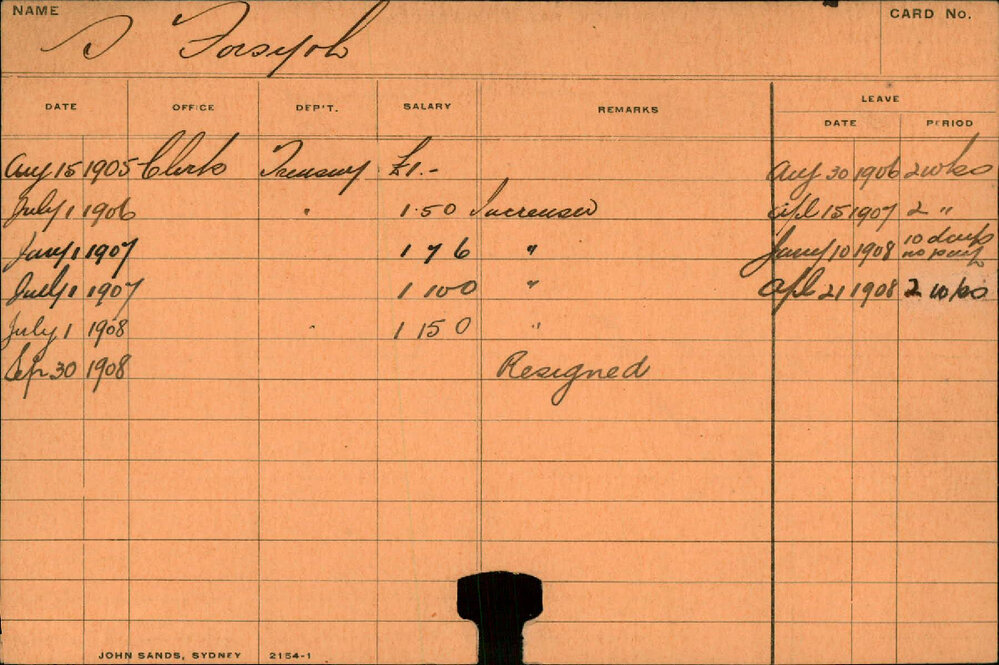 NAME CARD No.
S Forsyth
LEAVE
DATE OFFICE DEP'T. SALARY REMARKS DATE PERIOD
Aug 15 1905 Clerk Treasury £1.- Aug 30 1906 2 wks
July 1 1906 " 1 5 0 Increased Apl 15 1907 2 "
Jany 1 1907 1 7 6 " Jany 10 1908 10 days no pay
July 1 1907 1 10 0 " Apl 21 1908 2 wks
July 1 1908 " 1 15 0 "
Sep 30 1908 Resigned
JOHN SANDS, SYDNEY 2154-1